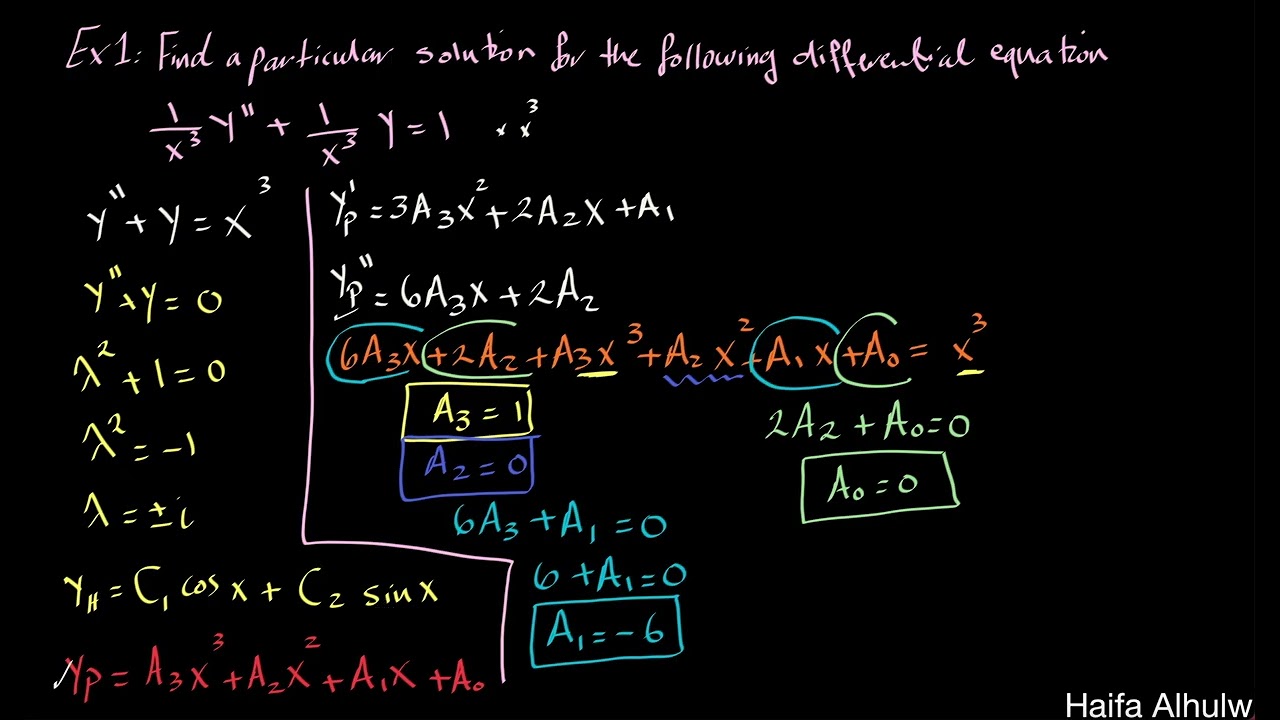 Ex1: Find a particular solution for the following differential equation
1/x³ y'' + 1/x³ y = 1 · x³
y'' + y = x³
y'' + y = 0
λ² + 1 = 0
λ² = -1
λ = ±i
y_H = C₁ cos x + C₂ sin x
y_p = A₃x³ + A₂x² + A₁x + A₀
y_p' = 3A₃x² + 2A₂x + A₁
y_p'' = 6A₃x + 2A₂
6A₃x + 2A₂ + A₃x³ + A₂x² + A₁x + A₀ = x³
A₃ = 1
A₂ = 0
6A₃ + A₁ = 0
6 + A₁ = 0
A₁ = -6
2A₂ + A₀ = 0
A₀ = 0
Haifa Alhulw